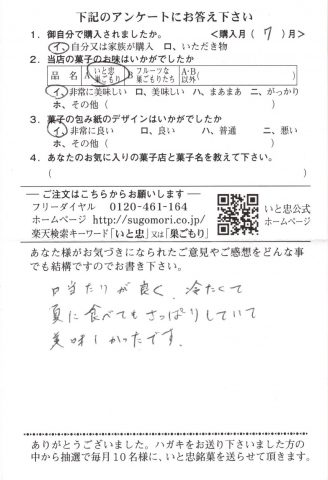 下記のアンケートにお答え下さい
1．御自分で購入されましたか。　＜購入月（ 7 ）月＞
イ、自分又は家族が購入　ロ、いただき物
2．当店の菓子のお味はいかがでしたか
品 名　A いと忠 巣ごもり　B フルーツな 巣ごもりたち　A・B 以外（　　　）
イ、非常に美味しい　ロ、美味しい　ハ、まあまあ　ニ、がっかり
ホ、その他（　　　）
3．菓子の包み紙のデザインはいかがですか
イ、非常に良い　ロ、良い　ハ、普通　ニ、悪い
ホ、その他（　　　）
4．あなたのお気に入りの菓子店と菓子名を教えて下さい。
（　　　）
― ご注文はこちらからお願いします ―
フリーダイヤル　0120-461-164
ホームページ http://sugomori.co.jp/
楽天検索キーワード「いと忠」又は「巣ごもり」
いと忠公式
ホームページ
あなた様がお気づきになられたご意見やご感想をどんな事
でも結構ですのでお書き下さい。
口当たりが良く、冷たくて
夏に食べてもさっぱりしていて
美味しかったです。
ありがとうございました。ハガキをお送り下さいました方の
中から抽選で毎月10名様に、いと忠銘菓を送らせて頂きます。